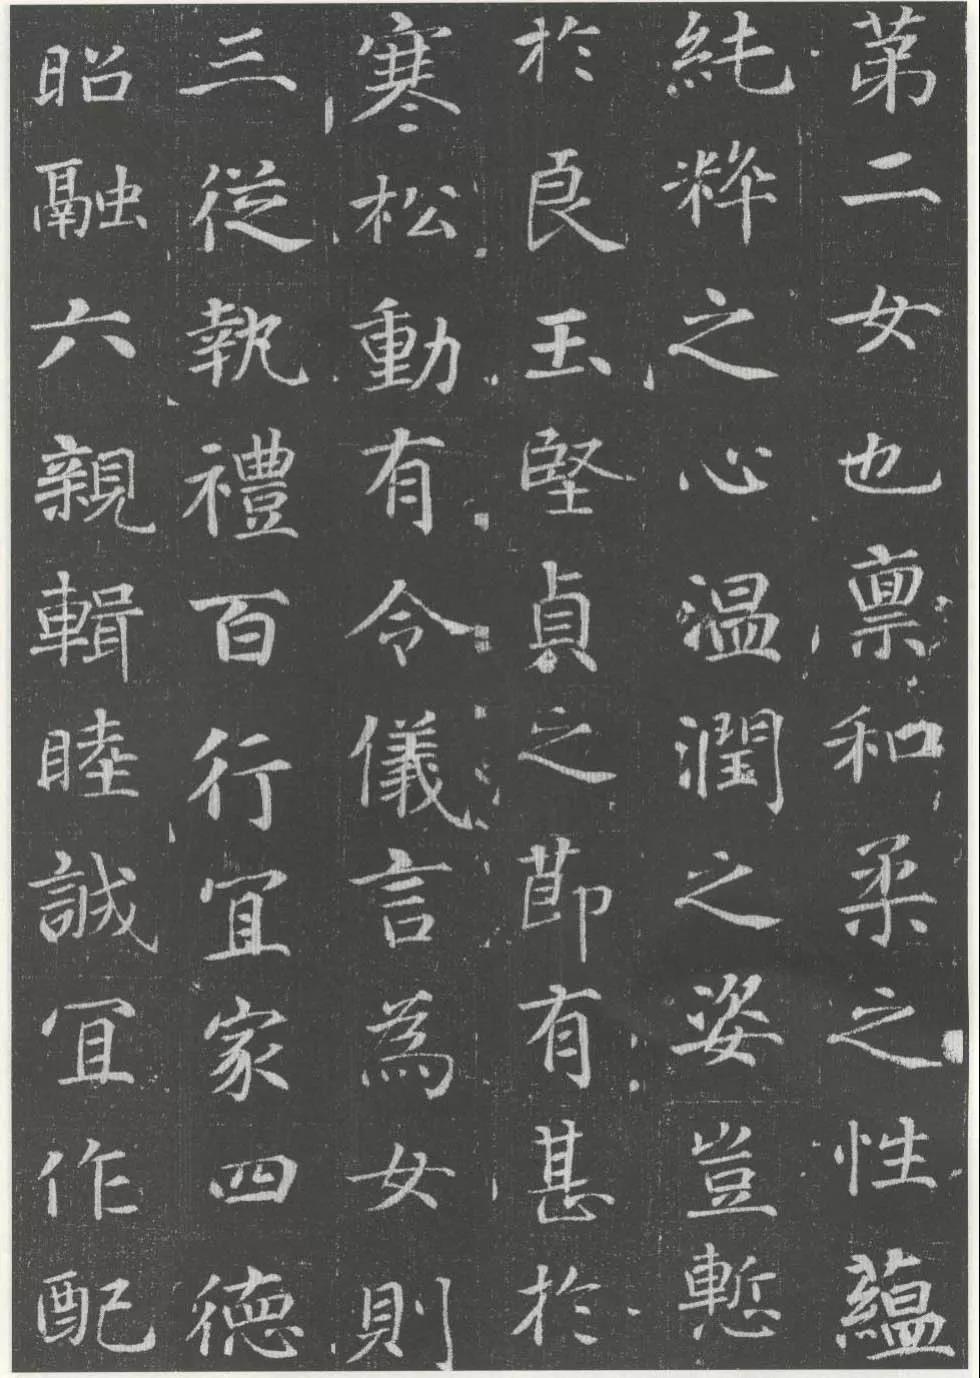 苐二女也禀和柔之性蘊
純粹之心温潤之姿豈慙
於良玉堅貞之莭有甚於
寒松動有令儀言為女則
三從執禮百行冝家四德
昭融六親輯睦誠冝作配